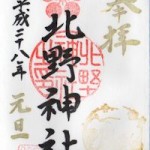 奉拝
北野神社
平成二十八年
元旦